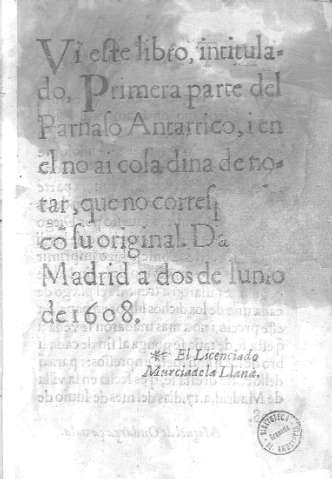 Vi este libro, intitula-
do, Primera parte del
Parnaso Antartico, i en
el no ai cosa dina de no-
tar, que no corresp
cõ su original. Da
Madrid a dos de Iunio
de 1608.
El Licenciado
Murcia de la Llana.
BIBLIOTECA
Granada